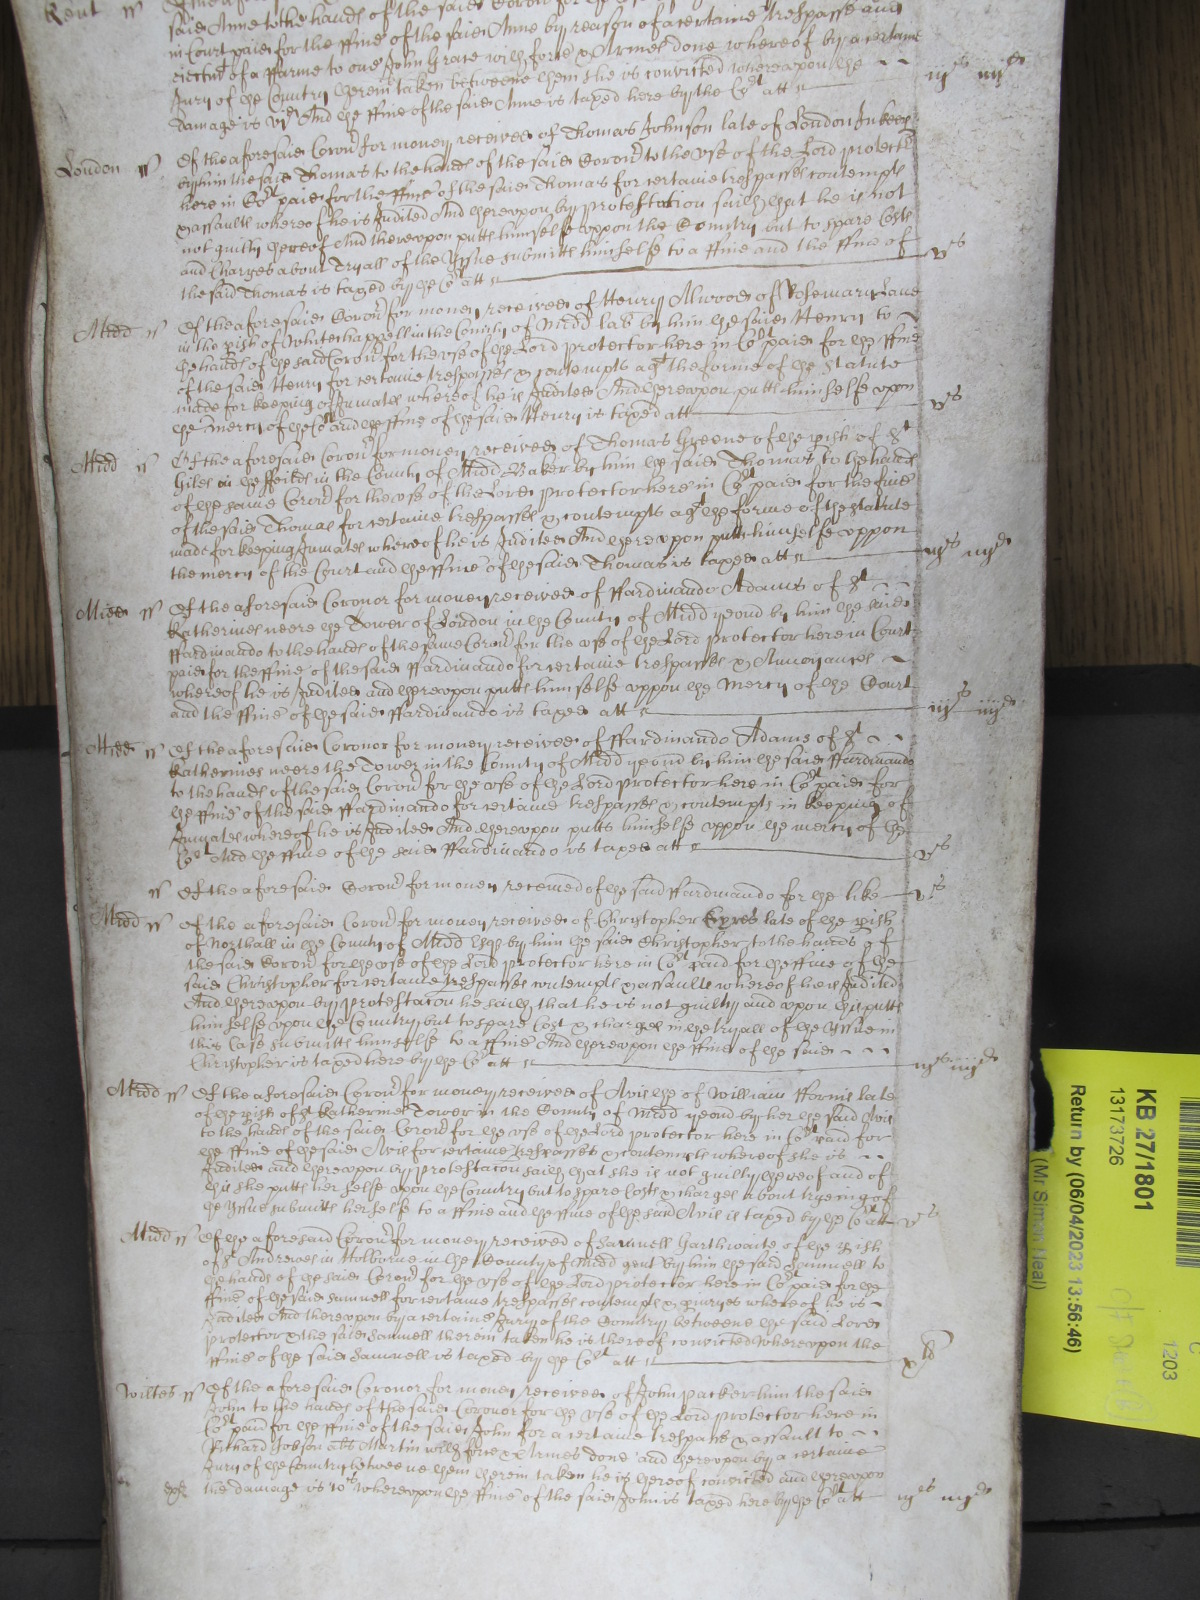 Kent ss
said Anne to the hands of the said Coron<sup>r</sup> for the use
in Court paid for the ffine of the said Anne by reason of a certaine trespasse and
eiectm<sup>t</sup> of a ffarme to one John Grave with force & Armes done whereof by a certaine
Jury of the Country therein taken betweene them she is convicted whereupon the
damage is vj<sup>d</sup> And the ffine of the said Anne is taxed here by the Co<sup>rt</sup> att iij<sup>s</sup> iiij<sup>d</sup>
London ss Of the aforesaid Coron<sup>r</sup> for money received of Thomas Johnson late of London Inkeep
by him the said Thomas to the hands of the said Coron<sup>r</sup> to the use of the Lord protect<sup>r</sup>
here in Co<sup>rt</sup> paid for the ffine of the said Thomas for certaine trespasses contempts
& assaults whereof he is Indited And thereupon by protestation saith that he is not
not guilty thereof And thereupon putts himselfe uppon the Country but to spare Costs
and Charges about Tryall of the Yssue submitts himselfe to a ffine and the ffine of
the said Thomas is taxed by the Co<sup>rt</sup> att v<sup>s</sup>
Midd ss Of the aforesaid Coron<sup>r</sup> for money received of Henry Atwood of Rosemary Lane
in the pish of Whitechappell in the County of Midd lab<sup>r</sup> by him the said Henry to
the hands of the said Coron<sup>r</sup> for the use of the Lord protector here in Co<sup>rt</sup> paid for the ffine
of the said Henry for certaine trespasses & contempts ag<sup>t</sup> the forme of the Statute
made for keeping of Inmates whereof he is Indited And thereupon putts himselfe upon
the mercy of the Co<sup>rt</sup> and the ffine of the said Henry is taxed att v<sup>s</sup>
Midd ss Of the aforesaid Coron<sup>r</sup> for money received of Thomas Greene of the pish of S<sup>t</sup>
Giles in the ffeilds in the County of Midd Baker by him the said Thomas to the hands
of the same Coron<sup>r</sup> for the use of the Lord protector here in Co<sup>rt</sup> paid for the fine
of the said Thomas for certaine trespasses & contempts ag<sup>t</sup> the forme of the statute
made for keeping Inmates whereof he is Indited And thereupon putts himselfe uppon
the mercy of the Court and the ffine of the said Thomas is taxed att iij<sup>s</sup> iiij<sup>d</sup>
Midd ss Of the aforesaid Coronor for money received of ffardinando Adams of S<sup>t</sup>
Katherines neere the Tower of London in the County of Midd yeom<sup>d</sup> by him the said
ffardinando to the hands of the same Coron<sup>r</sup> for the use of the Lord protector here in Court
paid for the ffine of the said ffardinando for certaine trespasses & Annoyances
whereof he is Indited and thereupon putts himselfe uppon the Mercy of the Court
and the ffine of the said ffardinando is taxed att iij<sup>s</sup> iiij<sup>d</sup>
Midd ss Of the aforesaid Coronor for money received of ffardinando Adams of S<sup>t</sup>
Katherines neere the Tower in the County of Midd yeom<sup>d</sup> by him the said ffardinando
to the hands of the said Coron<sup>r</sup> for the use of the Lord protector here in Co<sup>rt</sup> paid for
the ffine of the said ffardinando for certaine trespasses & contempts in keeping of
Inmates whereof he is Indited And thereupon putts himselfe uppon the mercy of the
Co<sup>rt</sup> And the ffine of the said ffardinando is taxed att v<sup>s</sup>
ss Of the aforesaid Coron<sup>r</sup> for money received of the said ffardinando for the like v<sup>s</sup>
Midd ss Of the aforesaid Coron<sup>r</sup> for money received of Christopher late of the pish
of Northall in the County of Midd by him the said Christopher to the hands of
the said Coron<sup>r</sup> for the use of the Lord protector here in Co<sup>rt</sup> paid for the ffine of the
said Christopher for certaine trespasses contempts & assaults whereof he is Indited
And thereupon by protestacon he saith that he is not guilty and upon this putts
himselfe upon the Country but to spare Cost & charges in the tryall of the Yssue in
this Case submitts himselfe to a ffine And thereupon the ffine of the said
Christopher is taxed here by the Co<sup>rt</sup> att iij<sup>s</sup> iiij<sup>d</sup>
Midd ss Of the aforesaid Coron<sup>r</sup> for money received of Avis the of William fforris late
of the pish of S<sup>t</sup> Katherines Tower in the County of Midd yeom<sup>d</sup> by her the said Avis
to the hands of the said Coron<sup>r</sup> for the use of the Lord protector here in Co<sup>rt</sup> paid for
the ffine of the said Avis for certaine trespasses & contempts whereof she is
Indited and thereupon by protestacon saith that she is not guilty thereof and of
this she putts her selfe upon the Country but to spare Costs & charges about tryeing of
the Yssue submitts herselfe to a ffine and the ffine of the said Avis is taxed by the Co<sup>rt</sup> att v<sup>s</sup>
Midd ss Of the aforesaid Coron<sup>r</sup> for money received of Samuell Garthwaite of the pish
of S<sup>t</sup> Andrewes in Holborne in the County of Midd gent by him the said Samuell to
the hands of the said Coron<sup>r</sup> for the use of the Lord protector here in Co<sup>rt</sup> paid for the
ffine of the said Samuell for certaine trespasses contempts & iniuryes whereof he is
Indited And thereupon by a certaine Jury of the Country betweene the said Lord
protector & the said Samuell therein taken he is thereof convicted Whereupon the
ffine of the said Samuell is taxed by the Co<sup>rt</sup> att
Wiltes ss Of the aforesaid Coronor for money received of John packer him the said
John to the hands of the said Coronor for the use of the Lord protector here in
Co<sup>rt</sup> paid for the ffine of the said John for a certaine trespass & assault to
Richard Jobson als Martin with force & Armes done and thereupon by a certaine
Jury of the Country betweene them therein taken he is thereof convicted and thereupon
the damage is 10<sup>s</sup> Whereupon the ffine of the said John is taxed here by the Co<sup>rt</sup> att iij<sup>s</sup> iiij<sup>d</sup>
KB 27/1801
13173726
Return by (06/04/2023 13:56:46)
(Mr Simon Neal)
1203